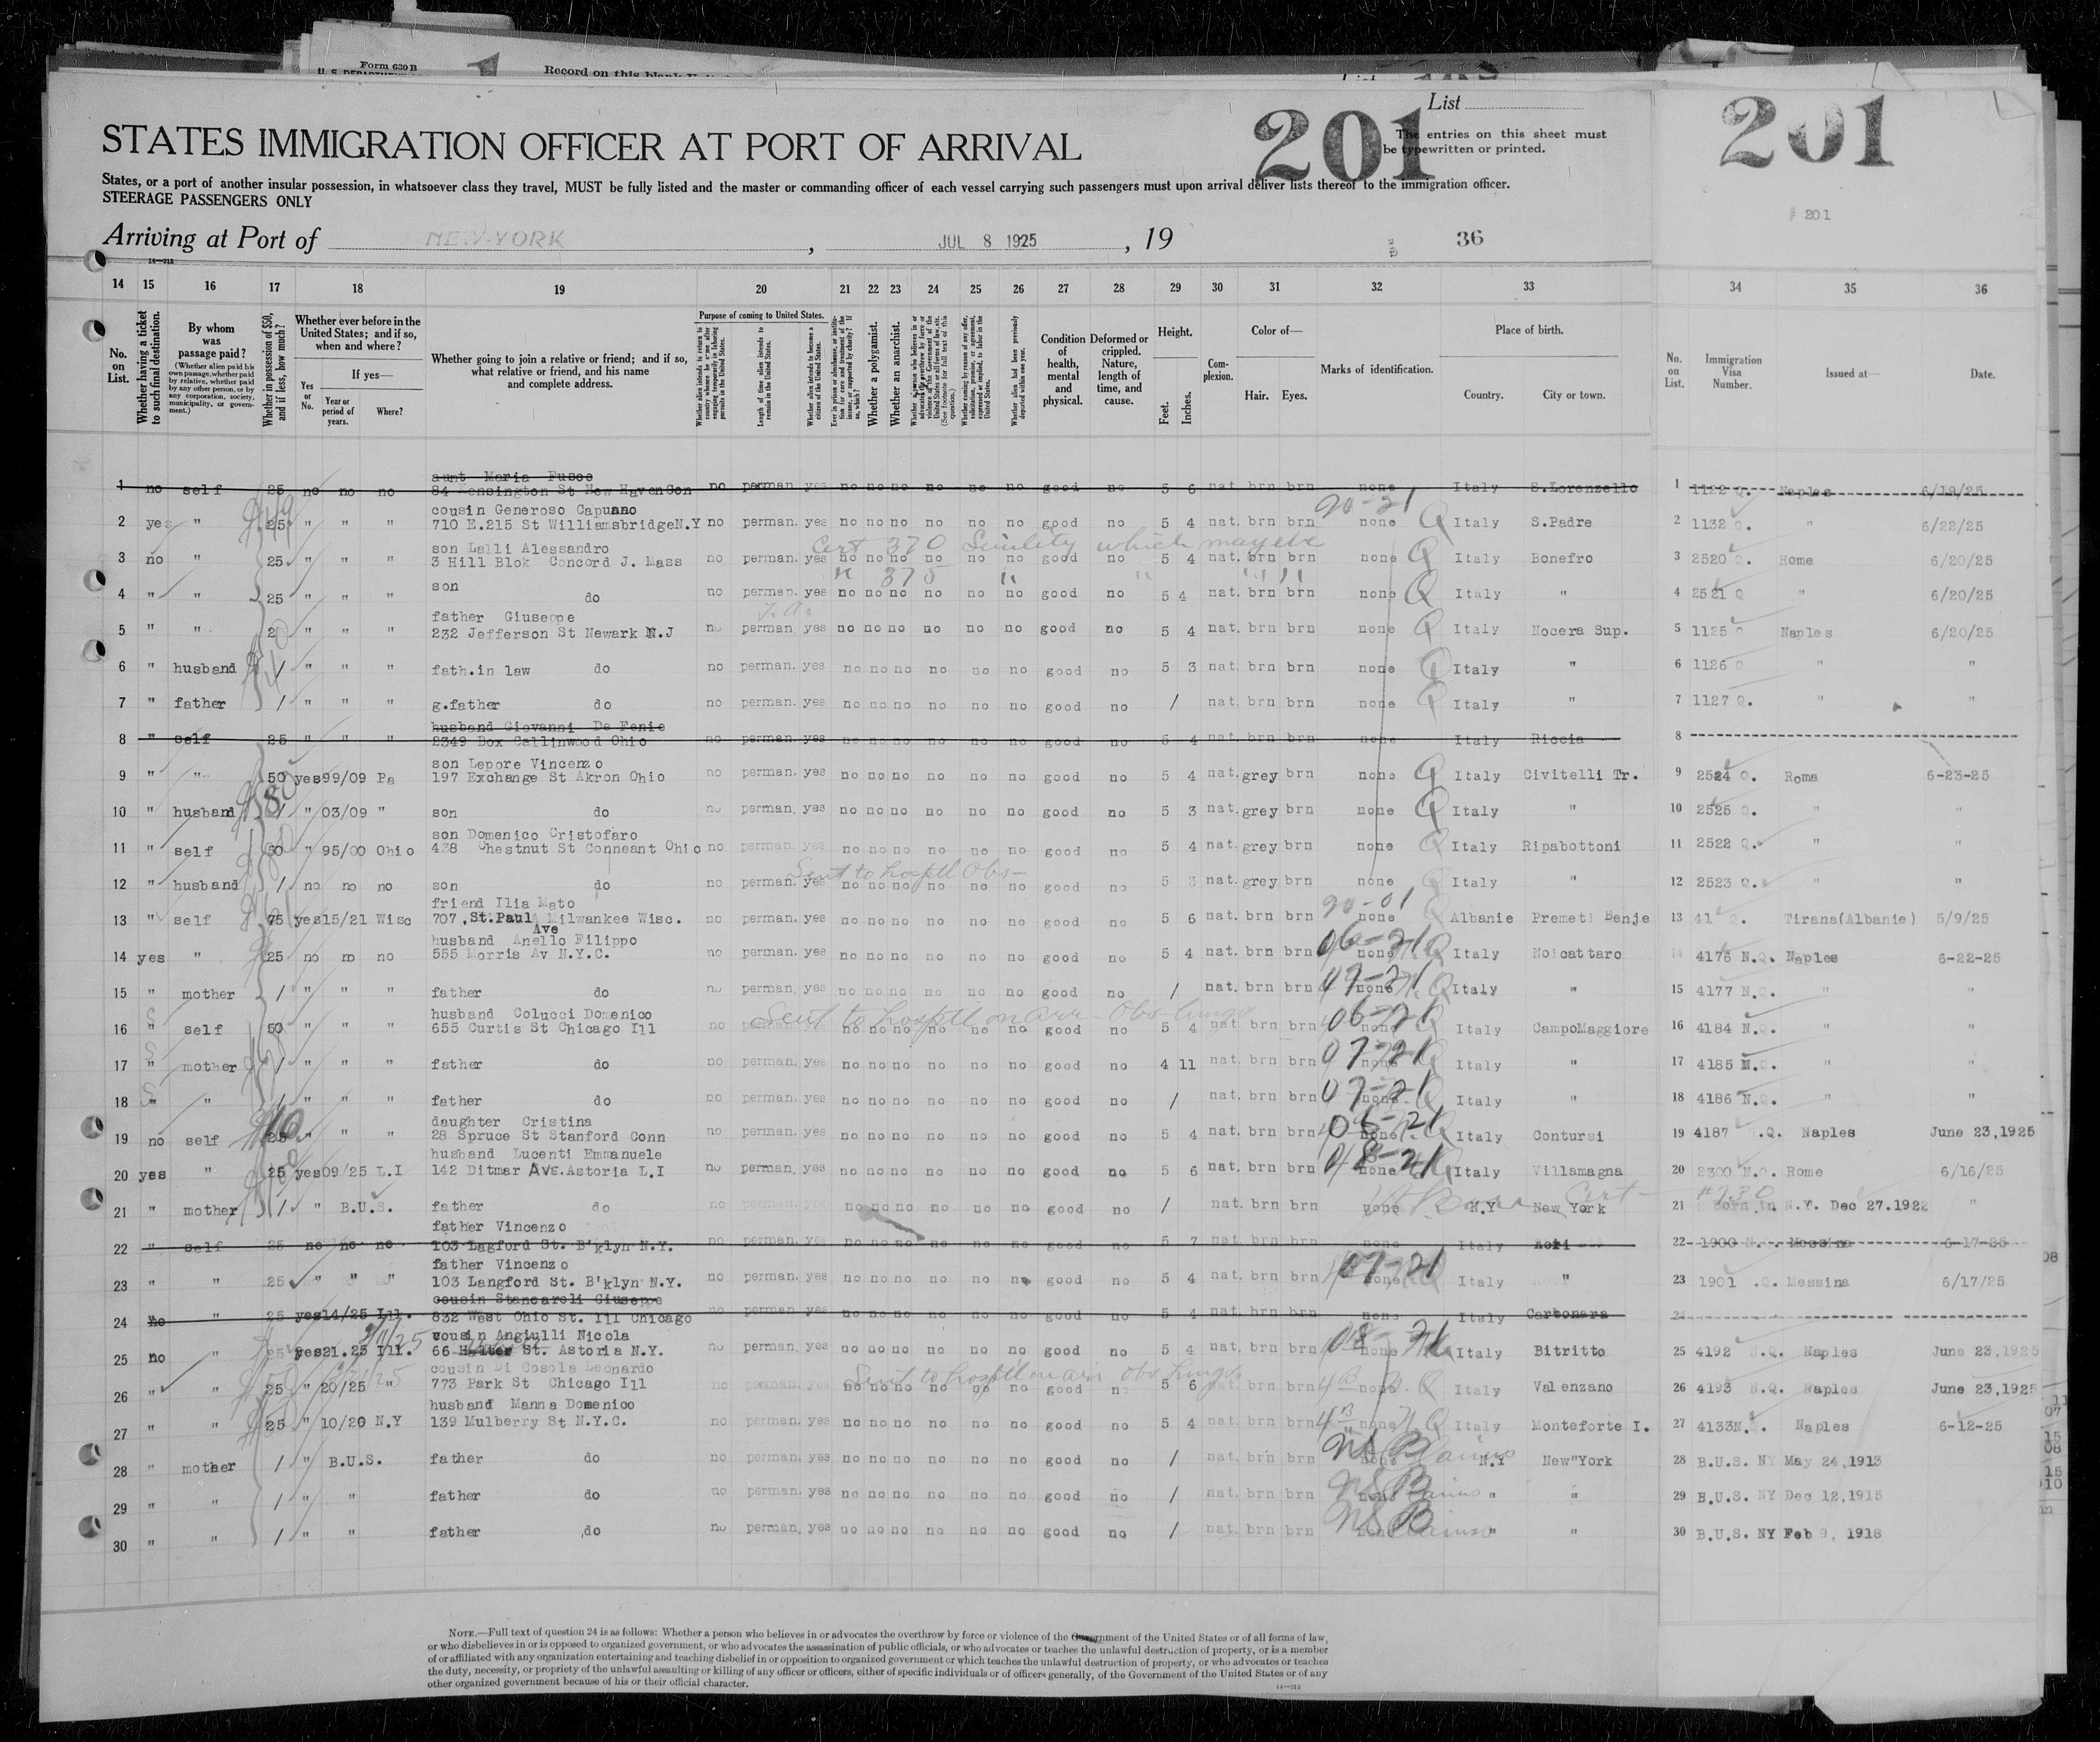 Form 630 B
U. S. DEPARTMENT
Record on this blank
List
201
The entries on this sheet must
be typewritten or printed.
201
STATES IMMIGRATION OFFICER AT PORT OF ARRIVAL
States, or a port of another insular possession, in whatsoever class they travel, MUST be fully listed and the master or commanding officer of each vessel carrying such passengers must upon arrival deliver lists thereof to the immigration officer.
STEERAGE PASSENGERS ONLY
201
Arriving at Port of NEW-YORK , JUL 8 1925 , 19 36
14 15 16 17 18 19 20 21 22 23 24 25 26 27 28 29 30 31 32 33 34 35 36
No. on List.
Whether having a ticket to such final destination.
By whom was passage paid?
(Whether alien paid his own passage, whether paid by relative, whether paid by any other person, or by any corporation, society, municipality, or government.)
Whether in possession of $50, and if less, how much?
Whether ever before in the United States; and if so, when and where?
If yes—
Yes or No.
Year or period of years.
Where?
Whether going to join a relative or friend; and if so, what relative or friend, and his name and complete address.
Purpose of coming to United States.
Length of time alien intends to remain in the United States.
Whether alien intends to become a citizen of the United States.
Whether a polygamist.
Whether an anarchist.
Whether alien had been previously deported within one year.
Condition of health, mental and physical.
Deformed or crippled. Nature, length of time, and cause.
Height.
Feet. Inches.
Complexion.
Color of—
Hair. Eyes.
Marks of identification.
Place of birth.
Country. City or town.
No. on List.
Immigration Visa Number.
Issued at—
Date.
aunt Maria Fusco
1 no self 25 no no no 84 Kensington St New Haven Con no perman. yes no no no no no no good no 5 6 nat brn brn Italy S.Lorenzello 1 1122 Q. Naples 6/19/25
20-21
cousin Generoso Capuano
2 yes " 25 " " " 710 E.215 St Williamsbridge N.Y no perman. yes no no no no no no good no 5 4 nat. brn brn none Q Italy S.Padre 2 1132 Q. " 6/22/25
Cert 370 Senility which may etc
son Lalli Alessandro
3 no " 25 " " " 3 Hill Blok Concord J. Mass no perman. yes no no no no no no good no 5 4 nat. brn brn none Q Italy Bonefro 3 2520 Q. Rome 6/20/25
" 375 " " " "
son
4 " " 25 " " " do no perman. yes no no no no no no good no 5 4 nat. brn brn none Q Italy " 4 2521 Q " 6/20/25
father Giuseppe
5 " " " " " 232 Jefferson St Newark N.J no perman yes no no no no no no good no 5 4 nat. brn brn none Q Italy Nocera Sup. 5 1125 Q Naples 6/20/25
6 " husband / " " " fath.in law do no perman. yes no no no no no no good no 5 3 nat. brn brn none Q Italy " 6 1126 Q " "
7 " father / " " " g.father do no perman. yes no no no no no no good no / nat. brn brn none Q Italy " 7 1127 Q. " "
husband Giovanni De Fenis
8 " self 25 " " " 2349 Box Callinwood Ohio no perman. yes no no no no no no good no 5 4 nat. brn brn none Italy Riccia 8
son Lepore Vincenzo
9 " " 50 yes 99/09 Pa 197 Exchange St Akron Ohio no perman. yes no no no no no no good no 5 4 nat. grey brn none Q Italy Civitelli Tr. 9 2524 Q. Roma 6-23-25
10 " husband / " 03/09 " son do no perman. yes no no no no no no good no 5 3 nat. grey brn none Q Italy " 10 2525 Q. " "
son Domenico Cristofaro
11 " self 50 " 95/00 Ohio 438 Chestnut St Conneant Ohio no perman. yes no no no no no no good no 5 4 nat. grey brn none Q Italy Ripabottoni 11 2522 Q. " "
Sent to hosptl Obs-
12 " husband / no no no son do no perman. yes no no no no no no good no 5 3 nat. grey brn none Q Italy " 12 2523 Q. " "
20-01
friend Ilia Mato
13 " self 75 yes 15/21 Wisc 707, St.Paul Milwankee Wisc. no perman. yes no no no no no no good no 5 6 nat. brn brn none Q Albanie Premeti Benje 13 41 Q. Tirana(Albanie) 5/9/25
Ave
husband Anello Filippo
14 yes " 25 no no no 555 Morris Av N.Y.C. no perman. yes no no no no no no good no 5 4 nat. brn brn 06-21 none Q Italy Noicattaro 14 4176 N.Q. Naples 6-22-25
15 " mother / " " " father do no perman. yes no no no no no no good no / nat. brn brn 07-21 none Q Italy " 15 4177 N.Q. " "
Sent to hosptl on arr- Obs- lungs
husband Colucci Domenico
16 " self 50 " " " 655 Curtis St Chicago Ill no perman. yes no no no no no no good no 5 4 nat brn brn 06-21 none Q Italy CampoMaggiore 16 4184 N.Q. " "
17 " mother / " " " father do no perman. yes no no no no no no good no 4 11 nat. brn brn 07-21 none Q Italy " 17 4185 N.Q. " "
18 " " / " " " father do no perman. yes no no no no no no good no / nat. brn brn 07-21 none Q Italy " 18 4186 N.Q. " "
daughter Cristina
19 no self 25 " " " 28 Spruce St Stanford Conn no perman. yes no no no no no no good no 5 4 nat. brn brn 06-21 none Q Italy Contursi 19 4187 .Q. Naples June 23,1925
husband Lucenti Emmanuele
20 yes " 25 yes 09/25 L.I 142 Ditmar Ave.Astoria L.I no perman. yes no no no no no no good no 5 6 nat. brn brn 48-21 none Q Italy Villamagna 20 2300 N.Q. Rome 6/16/25
21 " mother / " B.U.S. father do no perman. yes no no no no no no good no / nat. brn brn none N.Y New York Cert- #730 21 Born in N.Y. Dec 27.1922 "
father Vincenzo
22 " self 25 no no no 103 Lagford St. B'klyn N.Y. no perman. yes no no no no no no good no 5 7 nat. brn brn none Italy Acri 22 1900 N. . Messina 6-17-25
father Vincenzo
23 " " 25 " " " 103 Langford St. B'klyn N.Y. no perman. yes no no no no no no good no 5 4 nat. brn brn 07-21 none Q Italy " 23 1901 .Q. Messina 6/17/25
cousin Stancaroli Giuseppe
24 no " 25 yes 14/25 Ill. 832 West Ohio St. Ill Chicago no perman. yes no no no no no no good no 5 4 nat. brn brn none Italy Carbonara 24
cousin Angiulli Nicola
25 no " 25 yes 21.25 Ill. 66 St. Astoria N.Y. no perman. yes no no no no no no good no 5 4 nat. brn brn 08-21 none Italy Bitritto 25 4192 N.Q. Naples June 23,1925
Sent to hosptl on arr Obs lungs
cousin Di Cosola Leonardo
26 " " 25 " 20/25 " 773 Park St Chicago Ill no perman. yes no no no no no no good no 5 6 nat. brn brn none Q Italy Valenzano 26 4193 N.Q. Naples June 23,1925
husband Manna Domenico
27 " " 25 " 10/20 N.Y 139 Mulberry St N.Y.C. no perman. yes no no no no no no good no 5 4 nat. brn brn none Q Italy Monteforte I. 27 4133N. . Naples 6-12-25
28 " mother / " B.U.S. father do no perman. yes no no no no no no good no / nat. brn brn NSB none N.Y New"York 28 B.U.S. NY May 24,1913
29 " " / " " father do no perman. yes no no no no no no good no / nat. brn brn NSB none " " 29 B.U.S. NY Dec 12,1915
30 " " / " " father do no perman. yes no no no no no no good no / nat. brn brn NSB none " " 30 B.U.S. NY Feb 9, 1918
NOTE.—Full text of question 24 is as follows: Whether a person who believes in or advocates the overthrow by force or violence of the Government of the United States or of all forms of law,
or who disbelieves in or is opposed to organized government, or who advocates the assassination of public officials, or who advocates or teaches the unlawful destruction of property, or is a member
of or affiliated with any organization entertaining and teaching disbelief in or opposition to organized government or which teaches the unlawful destruction of property, or who advocates or teaches
the duty, necessity, or propriety of the unlawful assaulting or killing of any officer or officers, either of specific individuals or of officers generally, of the Government of the United States or of any
other organized government because of his or their official character.
14—213